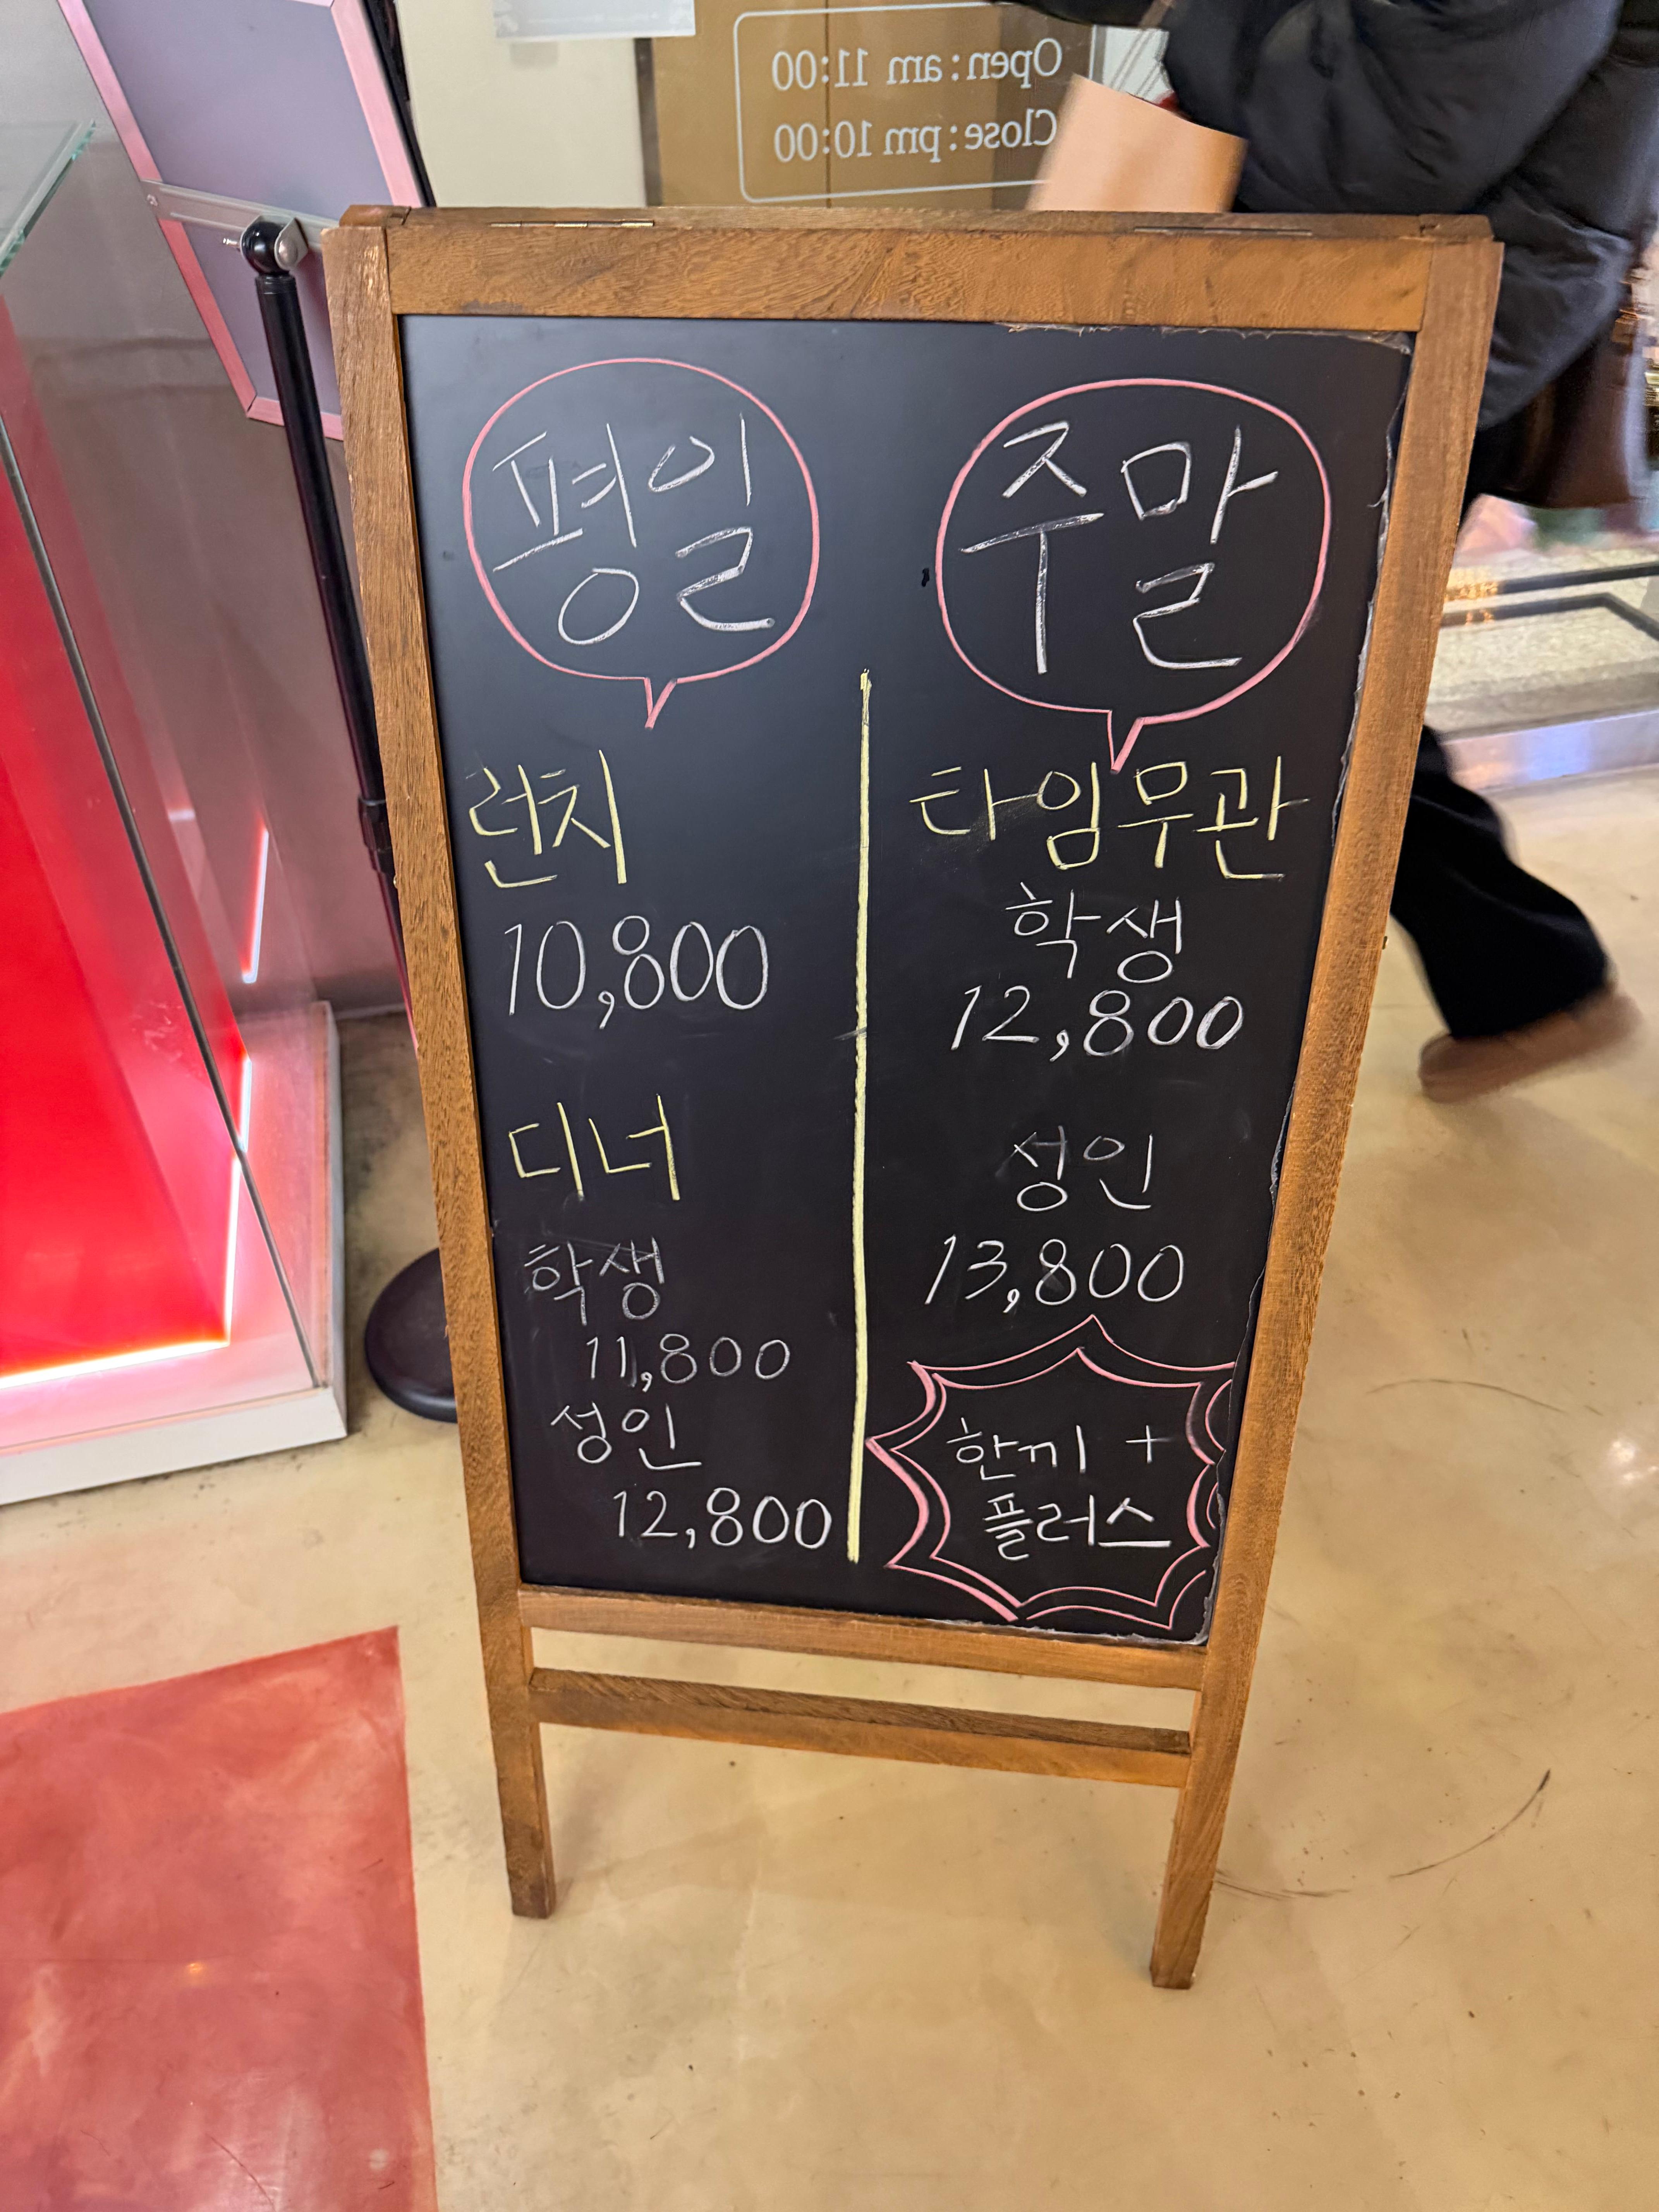 Open : am 11:00
Close : pm 10:00
평일
런치
10,800
디너
학생
11,800
성인
12,800
주말
타임무관
학생
12,800
성인
13,800
한끼 +
플러스